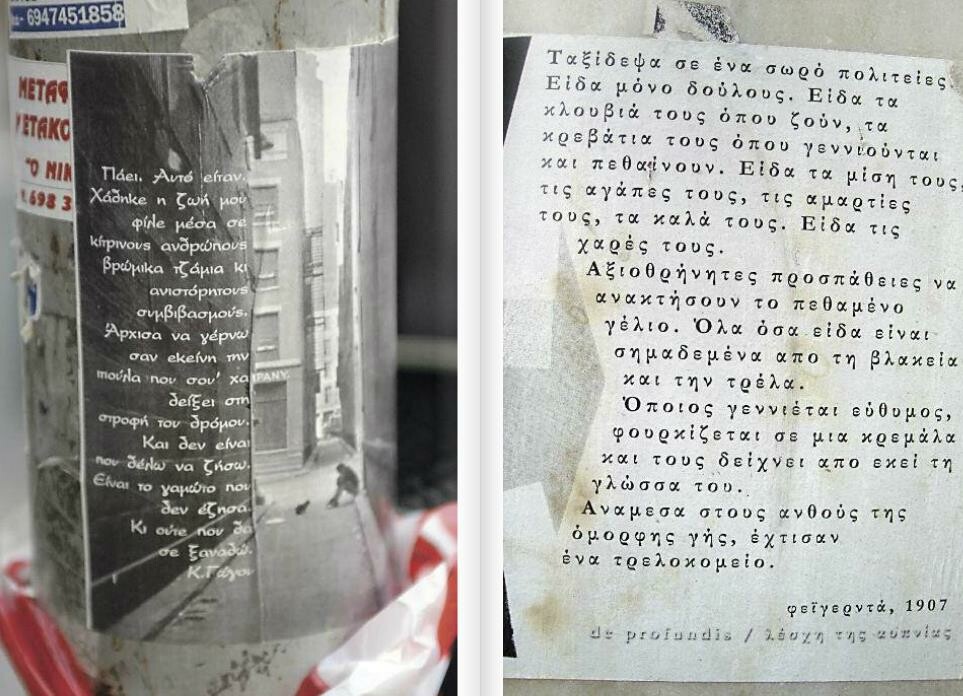 6947451858
ΜΕΤΑΦ
ΜΕΤΑΚΟ
"Ο ΝΙΚ
698 3
Πάει. Αυτό είταν.
Χάθηκε η ζωή μου
φίλε μέσα σε
κίτρινους ανθρώπους
βρώμικα τζάμια κι
ανιστόρητους
συμβιβασμούς.
Άρχισα να γέρνω
σαν εκείνη την
ιτιούλα που σου' χα
δείξει στη
στροφή του δρόμου.
Και δεν είναι
που θέλω να ζήσω.
Είναι το γαμώτο που
δεν έζησα.
Κι ούτε που θα
σε ξαναδώ.
Κ.Γώγου
MPANY.
Ταξίδεψα σε ένα σωρό πολιτείες.
Είδα μόνο δούλους. Είδα τα
κλουβιά τους όπου ζούν, τα
κρεβάτια τους όπου γεννιούνται
και πεθαίνουν. Είδα τα μίση τους,
τις αγάπες τους, τις αμαρτίες
τους, τα καλά τους. Είδα τις
χαρές τους.
Αξιοθρήνητες προσπάθειες να
ανακτήσουν το πεθαμένο
γέλιο. Όλα όσα είδα είναι
σημαδεμένα απο τη βλακεία
και την τρέλα.
Όποιος γεννιέται εύθυμος,
φουρκίζεται σε μια κρεμάλα
και τους δείχνει απο εκεί τη
γλώσσα του.
Αναμεσα στους ανθούς της
όμορφης γής, έχτισαν
ένα τρελοκομείο.
φεϊγερντά, 1907
de profundis / λέσχη της αϋπνίας